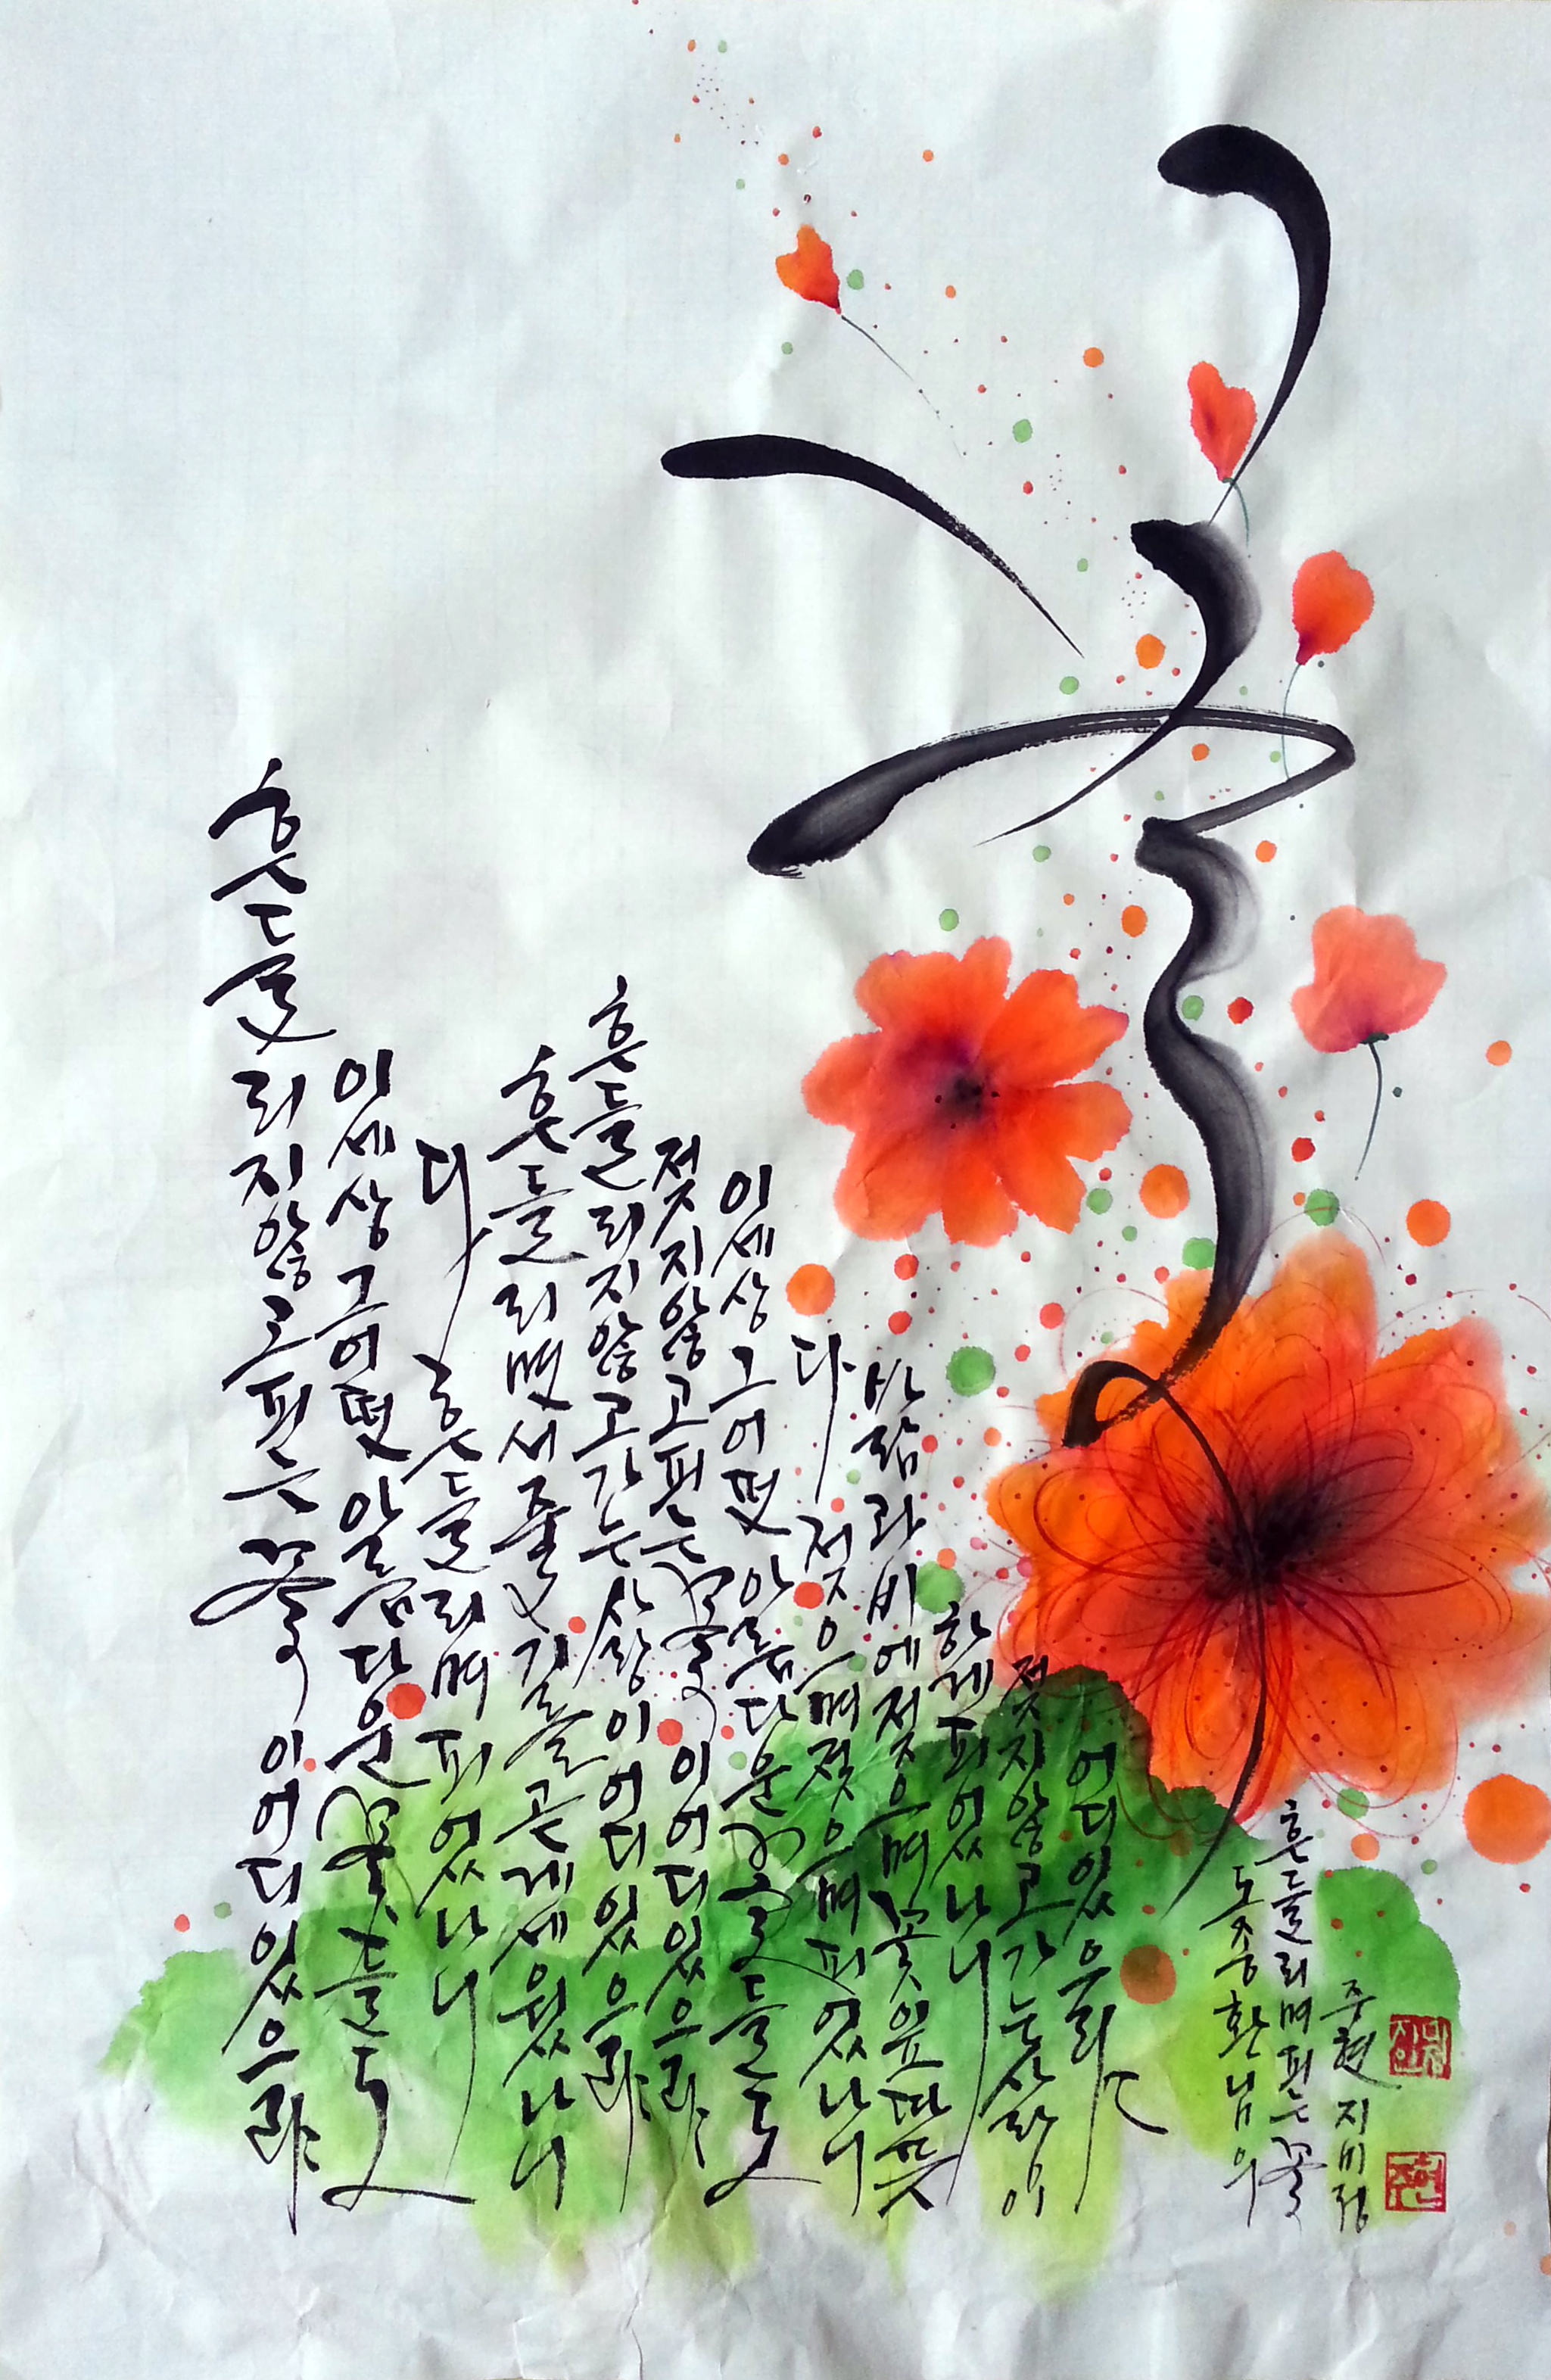 흔들리지 않고 피는 꽃이 어디 있으랴
이 세상 그 어떤 아름다운 꽃들도
다 흔들리며 피었나니
흔들리면서 줄기를 곧게 세웠나니
흔들리지 않고 가는 사랑이 어디 있으랴
젖지 않고 피는 꽃이 어디 있으랴
이 세상 그 어떤 아름다운 꽃들도
다 젖으며 젖으며 피었나니
바람과 비에 젖으며 꽃잎 따뜻
하게 피었나니
젖지 않고 가는 삶이
어디 있으랴
도종환 님의
흔들리며 피는 꽃
주현